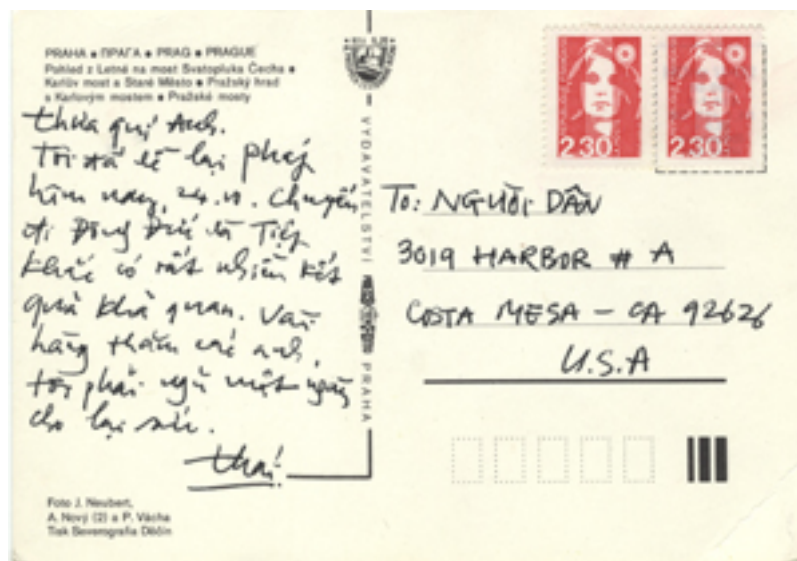 PRAHA • ПРАГА • PRAG • PRAGUE
Pohled z Letné na most Svatopluka Čecha •
Karlův most a Staré Město • Pražský hrad
s Karlovým mostem • Pražské mosty
Thưa quí Anh.
Tôi đã về lại Pháp
hôm nay, 24.11. Chuyến
đi Đông Đức và Tiệp
Khắc có rất nhiều kết
quả khả quan. Vài
hàng thăm các anh,
tôi phải ngủ một ngày
cho lại sức.
Thái
Foto J. Neubert,
A. Nový (2) a P. Vácha
Tisk Severografia Děčín
VYDAVATELSTVÍ
PRAHA
2,30
2,30
To: NGƯỜI DÂN
3019 HARBOR # A
COSTA MESA – CA 92626
U.S.A